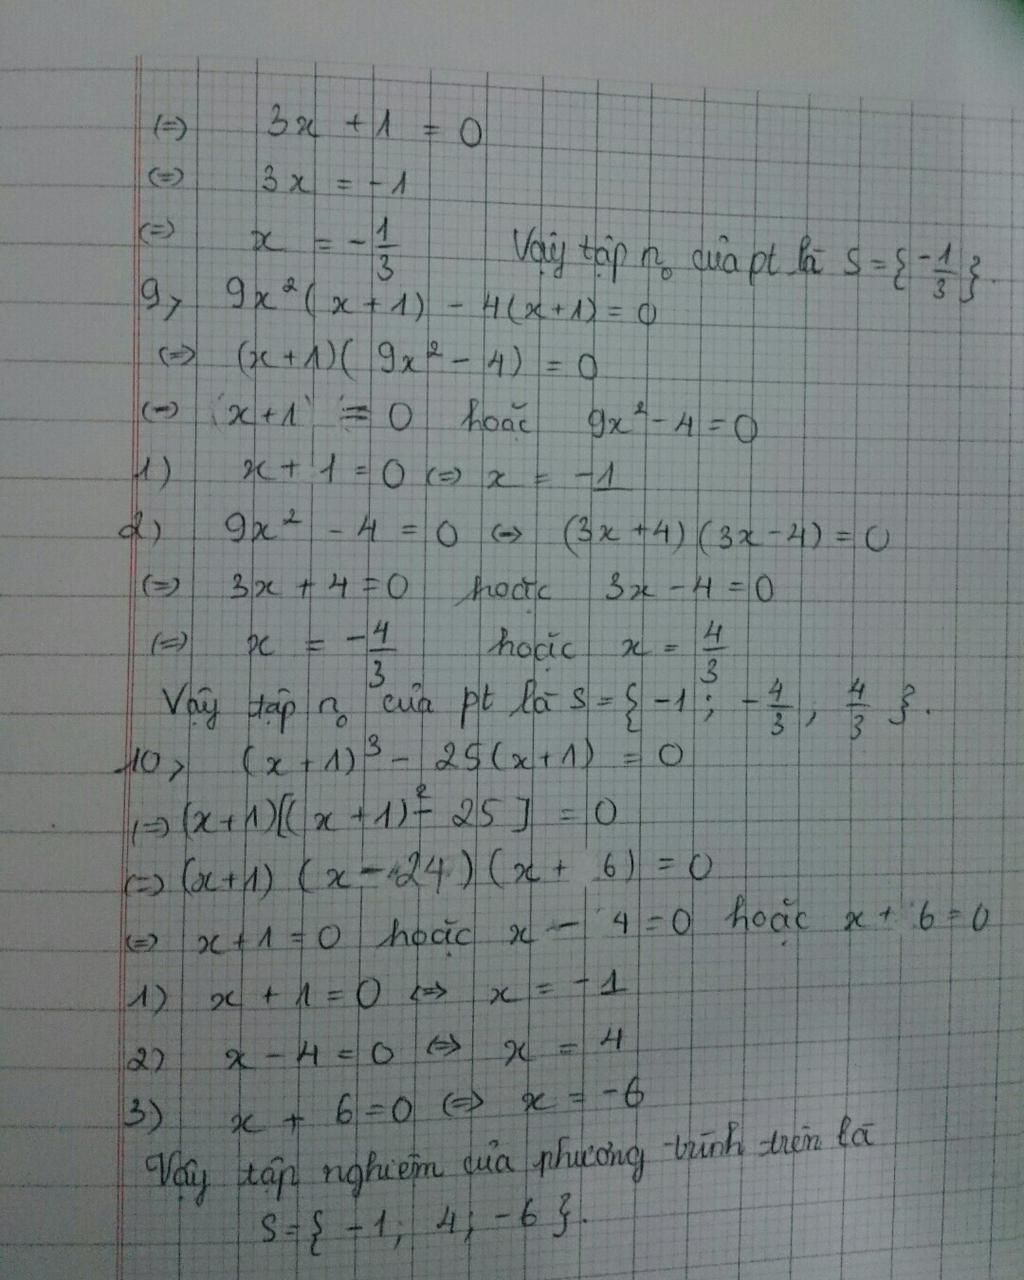 (=) 3x + 1 = 0
(=) 3x = -1
(=) x = -1/3 Vậy tập n₀ của pt là S = {-1/3}.
9, 9x²(x+1) - 4(x+1) = 0
(=) (x+1)(9x² - 4) = 0
(=) x+1 = 0 hoặc 9x² - 4 = 0
1) x + 1 = 0 (=) x = -1
2) 9x² - 4 = 0 (=) (3x+4)(3x-4) = 0
(=) 3x + 4 = 0 hoặc 3x - 4 = 0
(=) x = -4/3 hoặc x = 4/3
Vậy tập n₀ của pt là S = {-1; -4/3, 4/3}.
10, (x+1)³ - 25(x+1) = 0
(=) (x+1)[(x+1)² - 25] = 0
(=) (x+1) (x - 24) (x + 6) = 0
(=) x+1 = 0 hoặc x - 4 = 0 hoặc x + 6 = 0
1) x + 1 = 0 (=) x = -1
2) x - 4 = 0 (=) x = 4
3) x + 6 = 0 (=) x = -6
Vậy tập nghiệm của phương trình trên là
S = {-1; 4; -6}.